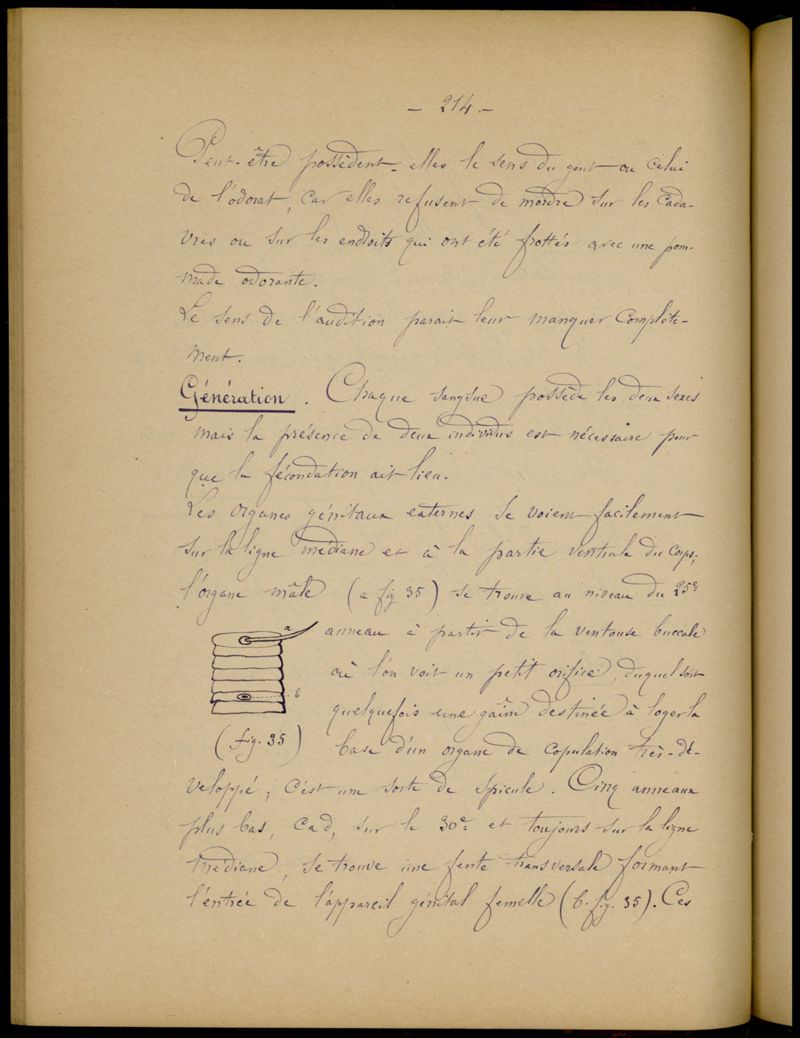 - 214 -
Peut-être possèdent-elles le sens du gout ou celui
de l'odorat, car elles refusent de mordre sur les cada-
vres ou sur les endroits qui ont été frottés avec une pom-
made odorante.
Le sens de l'audition parait leur manquer complète-
ment.
Génération. Chaque sangsue possède les deux sexes
mais la présence de deux individus est nécessaire pour
que la fécondation ait lieu.
Les organes génitaux externes se voient facilement
sur la ligne médiane et à la partie ventrale du corps;
l'organe mâle (a fig 35) se trouve au niveau du 25e
anneau à partir de la ventouse buccale
a
où l'on voit un petit orifice, duquel sort
b
quelquefois une gaîne destinée à loger la
(fig. 35)
base d'un organe de copulation très-dé-
veloppé; c'est une sorte de spicule. Cinq anneaux
plus bas, càd, sur le 30e et toujours sur la ligne
médiane, se trouve une fente transversale formant
l'entrée de l'appareil génital femelle (b. fig. 35). Ces